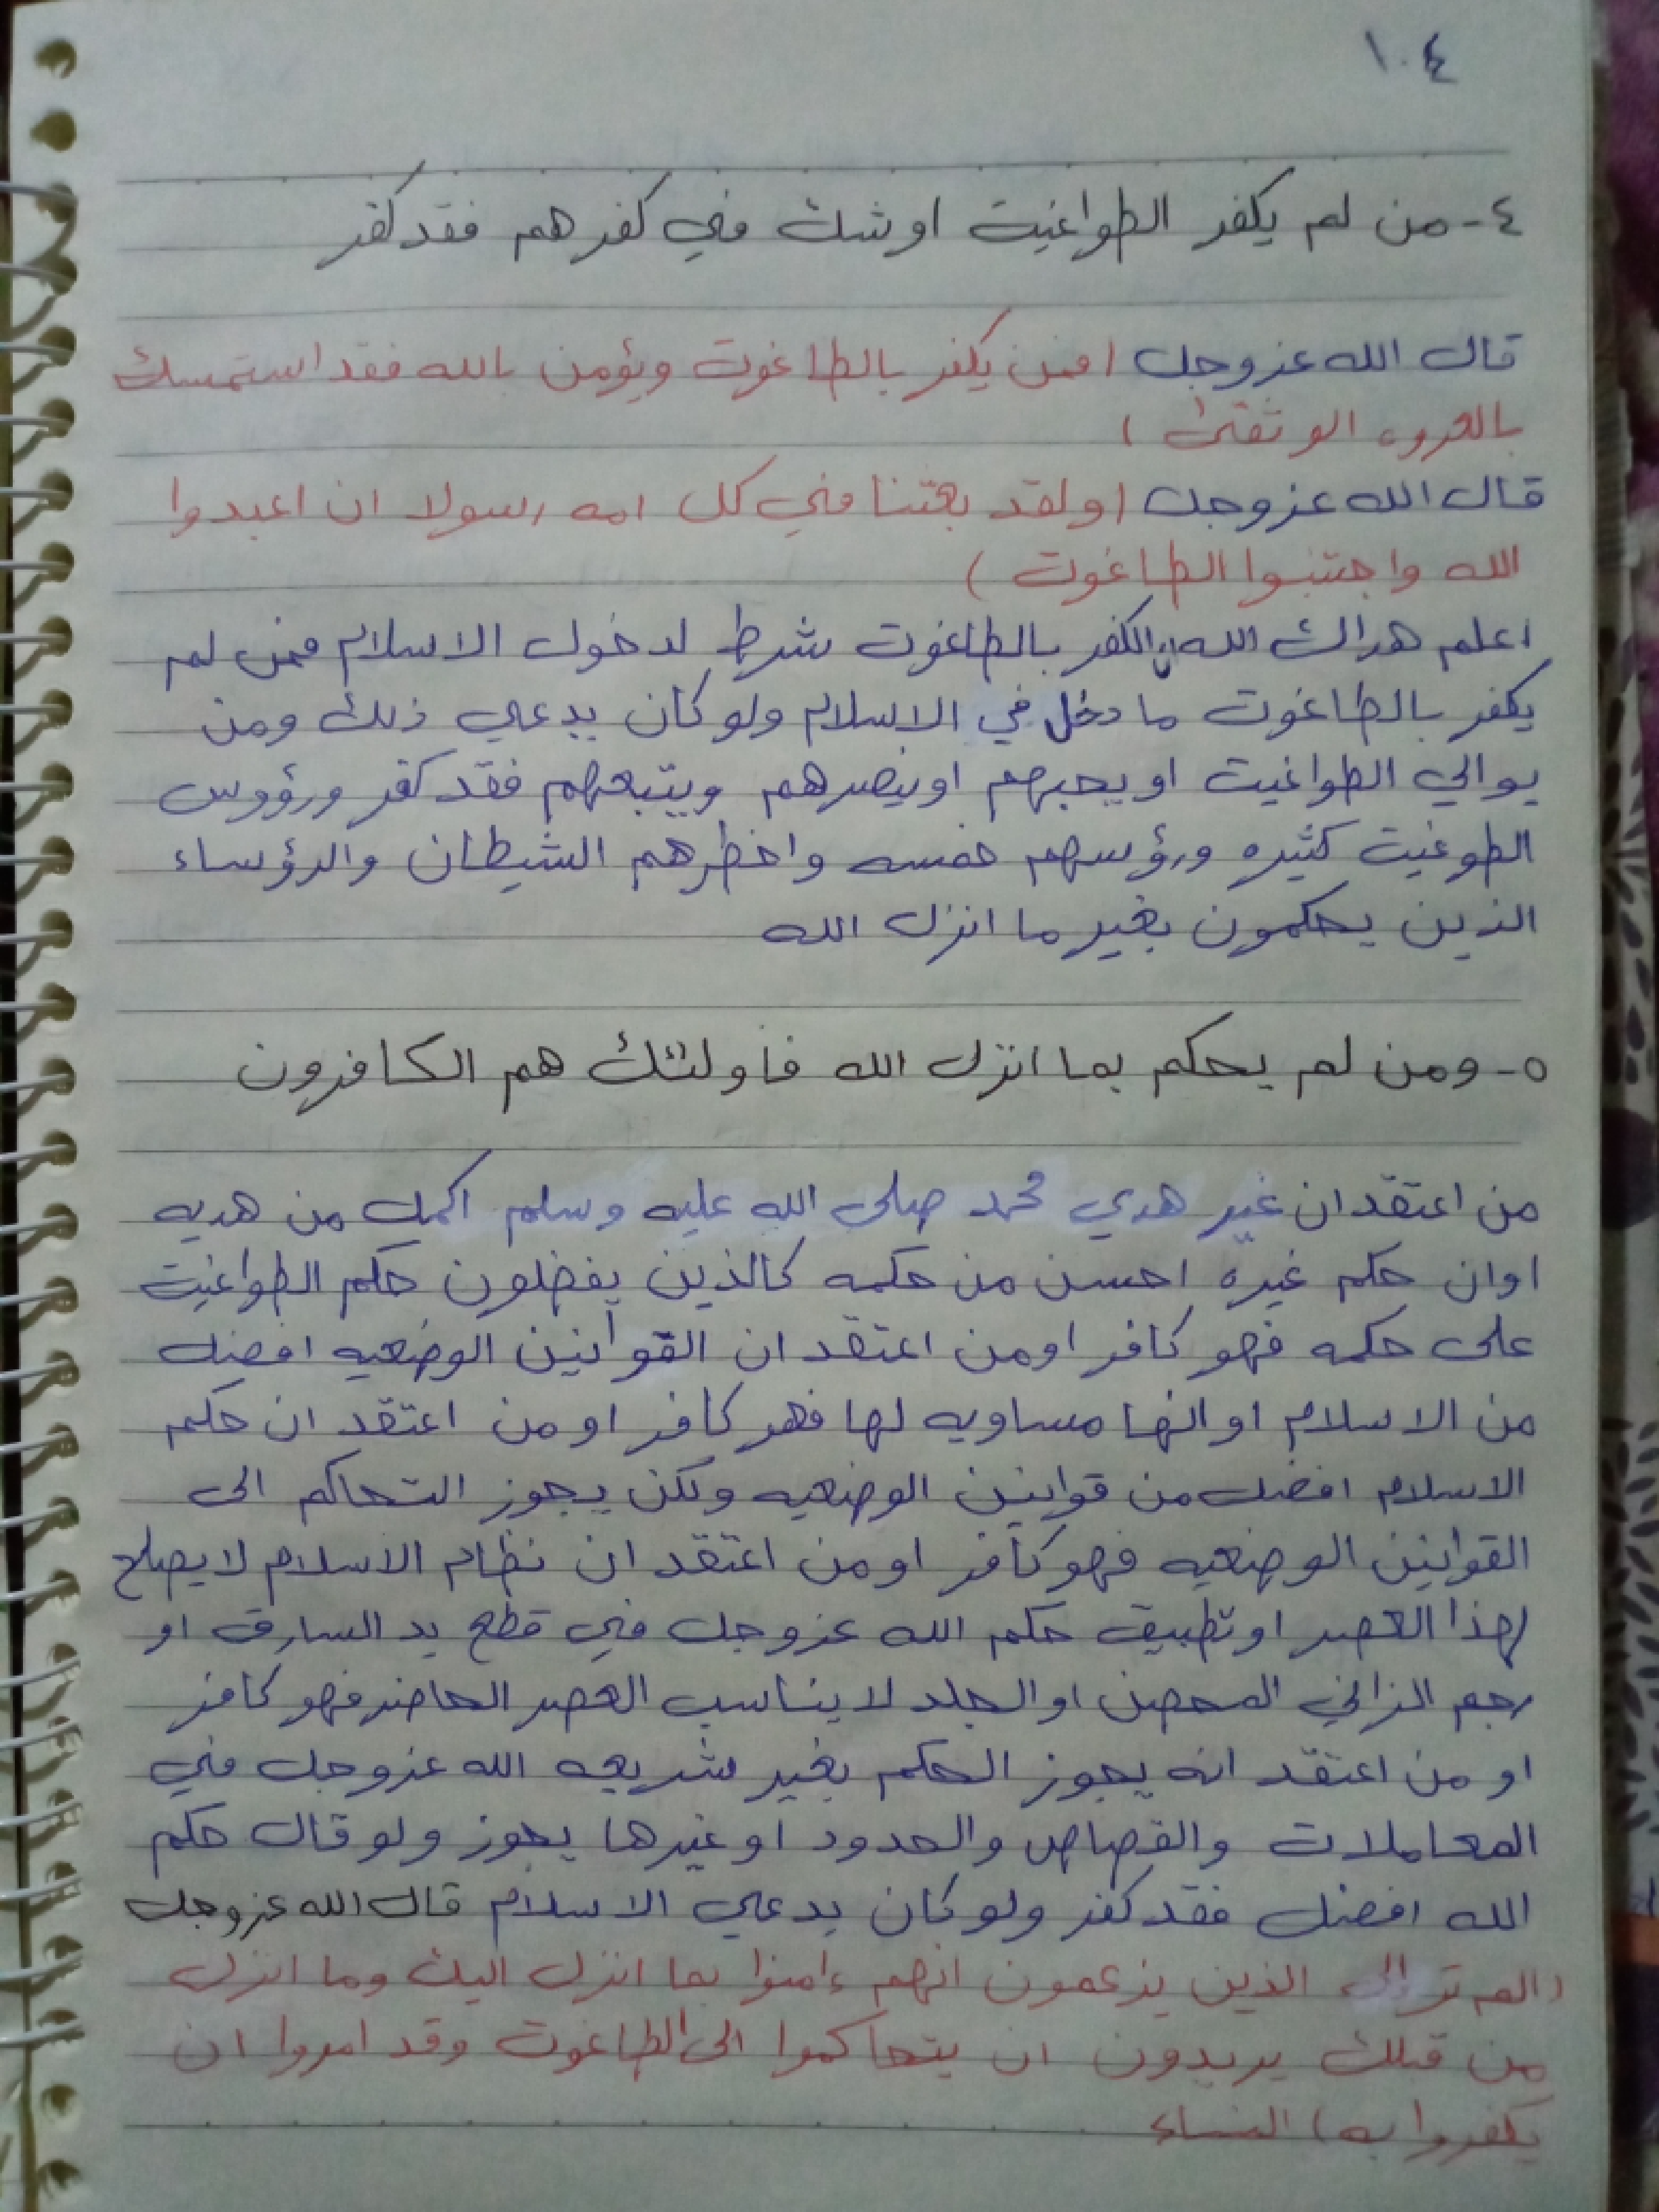 ١٠٤
٤- من لم يكفر الطواغيت او شك في كفرهم فقد كفر
قال الله عزوجل (فمن يكفر بالطاغوت ويؤمن بالله فقد استمسك
بالعروه الوثقى)
قال الله عزوجل (ولقد بعثنا في كل امه رسولا ان اعبدوا
الله واجتنبوا الطاغوت)
اعلم هداك الله ان الكفر بالطاغوت شرط لدخول الاسلام فمن لم
يكفر بالطاغوت ما دخل في الاسلام ولو كان يدعي ذلك ومن
يوالي الطواغيت او يحبهم او ينصرهم ويتبعهم فقد كفر ورؤوس
الطوغيت كثيره ورؤسهم خمسه واخطرهم الشيطان والرؤساء
الذين يحكمون بغير ما انزل الله
٥- ومن لم يحكم بما انزل الله فأولئك هم الكافرون
من اعتقد ان غير هدي محمد صلى الله عليه وسلم اكمل من هديه
اوان حكم غيره احسن من حكمه كالذين يفضلون حكم الطواغيت
على حكمه فهو كافر اومن اعتقد ان القوانين الوضعيه افضل
من الاسلام او انها مساويه لها فهو كافر او من اعتقد ان حكم
الاسلام افضل من قوانين الوضعيه ولكن يجوز التحاكم الى
القوانين الوضعيه فهو كافر او من اعتقد ان نظام الاسلام لا يصلح
لهذا العصر او تطبيق حكم الله عزوجل في قطع يد السارق او
رجم الزاني المحصن او الجلد لا يناسب العصر الحاضر فهو كافر
او من اعتقد انه يجوز الحكم بغير شريعه الله عزوجل في
المعاملات والقصاص والحدود او غيرها يجوز ولو قال حكم
الله افضل فقد كفر ولو كان يدعي الاسلام قال الله عزوجل
(الم تر الى الذين يزعمون انهم ءامنوا بما انزل اليك وما انزل
من قبلك يريدون ان يتحاكموا الى الطاغوت وقد امروا ان
يكفروا به) النساء